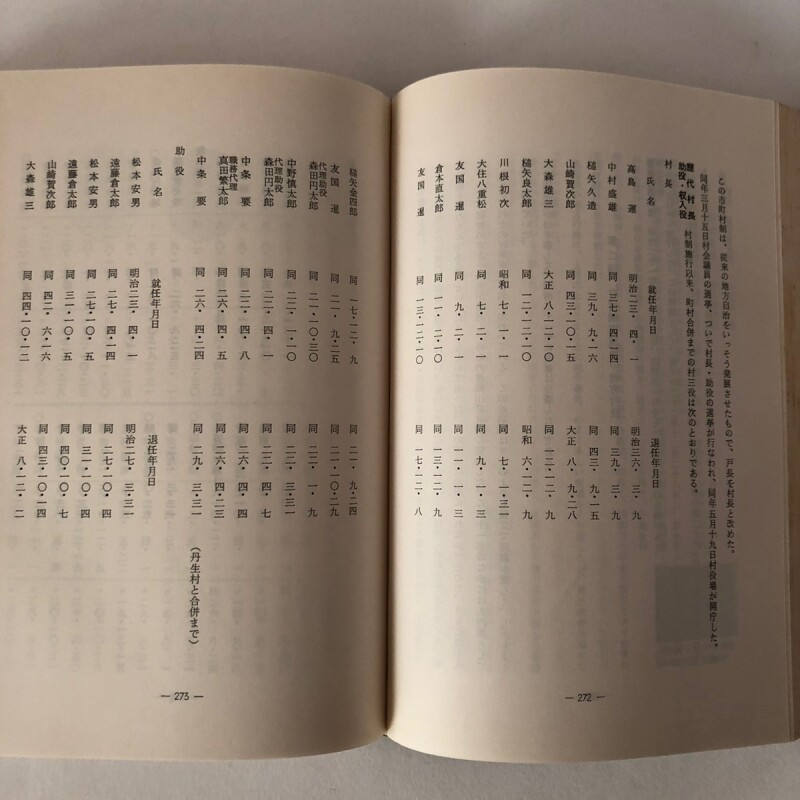 この市町村制は、従来の地方自治をいっそう発展させたもので、戸長を村長と改めた。
同年三月十五日村会議員の選挙、ついで村長・助役の選挙が行なわれ、同年五月十九日村役場が開庁した。
歴代村長
助役・収入役
村制施行以来、町村合併までの村三役は次のとおりである。
村長
氏名 就任年月日 退任年月日
高島運 明治二三・四・一 明治三六・三・九
中村盛雄 同三七・四・一四 同三九・三・九
槌矢久造 同三九・九・一六 同四三・九・一五
山崎賀次郎 同四三・一〇・一五 大正八・九・二八
大森雄三 大正八・一二・一〇 同一二・一二・九
槌矢良太郎 同一二・一二・一〇 昭和六・一二・九
川根初次 昭和七・一・一 同七・一・三一
大住八重松 同七・二・一 同九・一・三
友国暹 同九・二・一 同一一・一・三
倉本直太郎 同 同一三・一二・九
友国暹 同一三・一二・一〇 同一七・一二・八
— 272 —
槌矢金四郎 同一七・一二・九 同二一・九・二四
友国暹 同二一・九・二五 同二一・一〇・二九
代理助役
森田円太郎 同二一・一〇・三〇 同二二・一・九
中野慎太郎 同二二・一・一〇 同二二・三・三一
代理助役
森田円太郎 同二二・四・一 同二二・四・七
中条要 同二二・四・八 同二六・四・四
職務代理
真田繁太郎 同二六・四・五 同二六・四・二三
中条要 同二六・四・二四 同二九・三・三一 (丹生村と合併まで)
助役
氏名 就任年月日 退任年月日
松本安男 明治二三・四・一 明治二七・三・三一
遠藤倉太郎 同二七・四・一四 同二七・一〇・四
松本安男 同二七・一〇・五 同三一・一〇・四
遠藤倉太郎 同三一・一〇・五 同四〇・一〇・七
山崎賀次郎 同四二・六・一六 同四三・一〇・一四
大森雄三 同四四・一〇・一二 大正八・一二・二
— 273 —